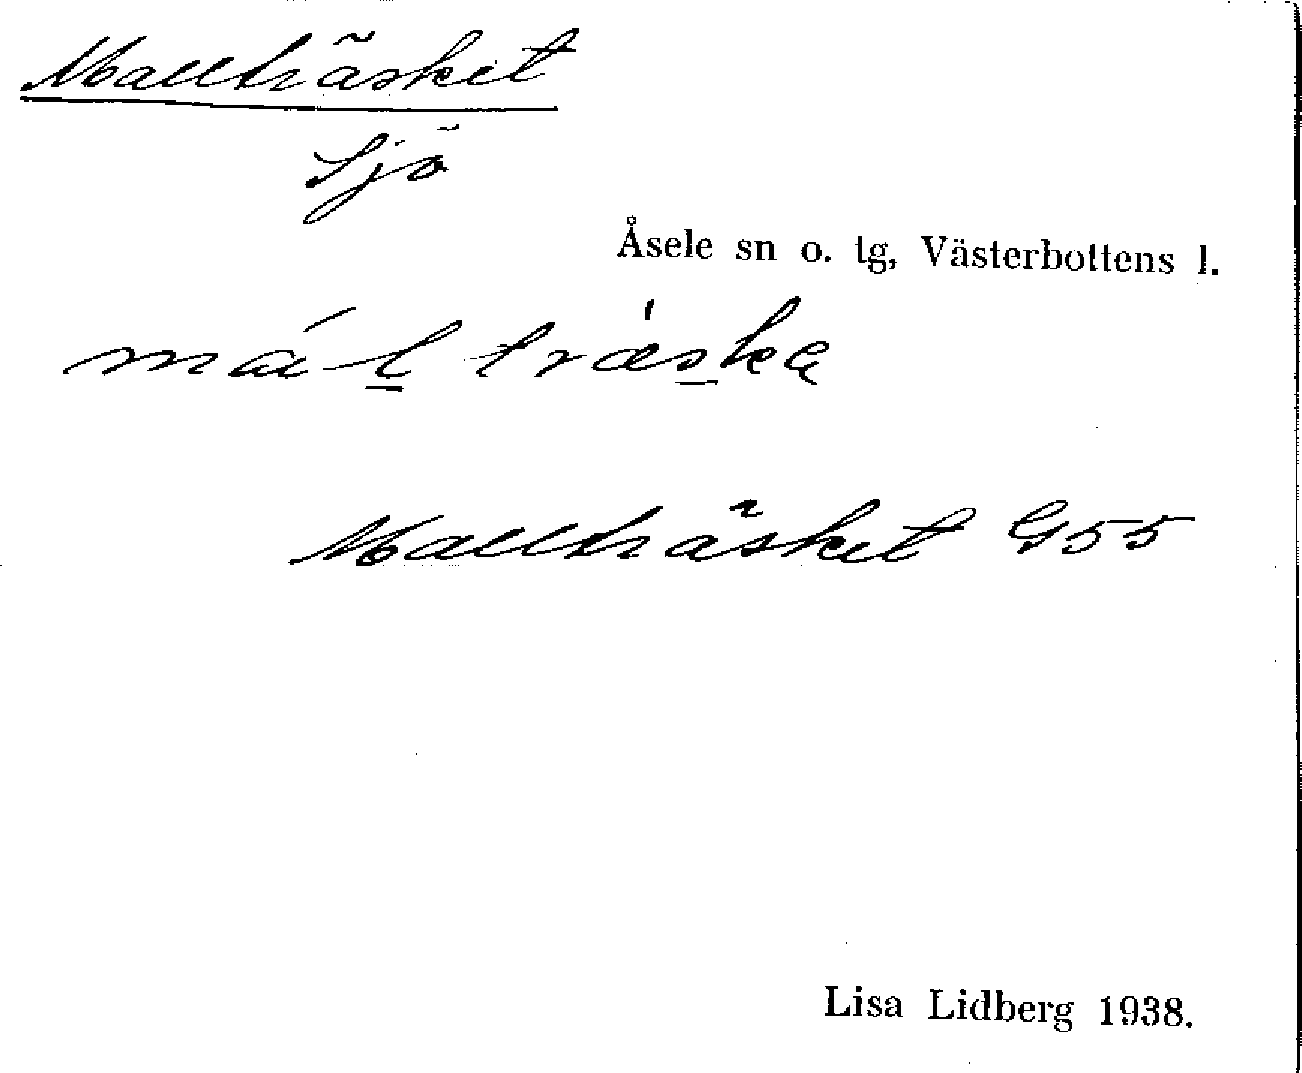 Mallträsket
Sjö
Åsele sn o. tg, Västerbottens l.
má l̲ træs̲ka
Mallträsket G55
Lisa Lidberg 1938.